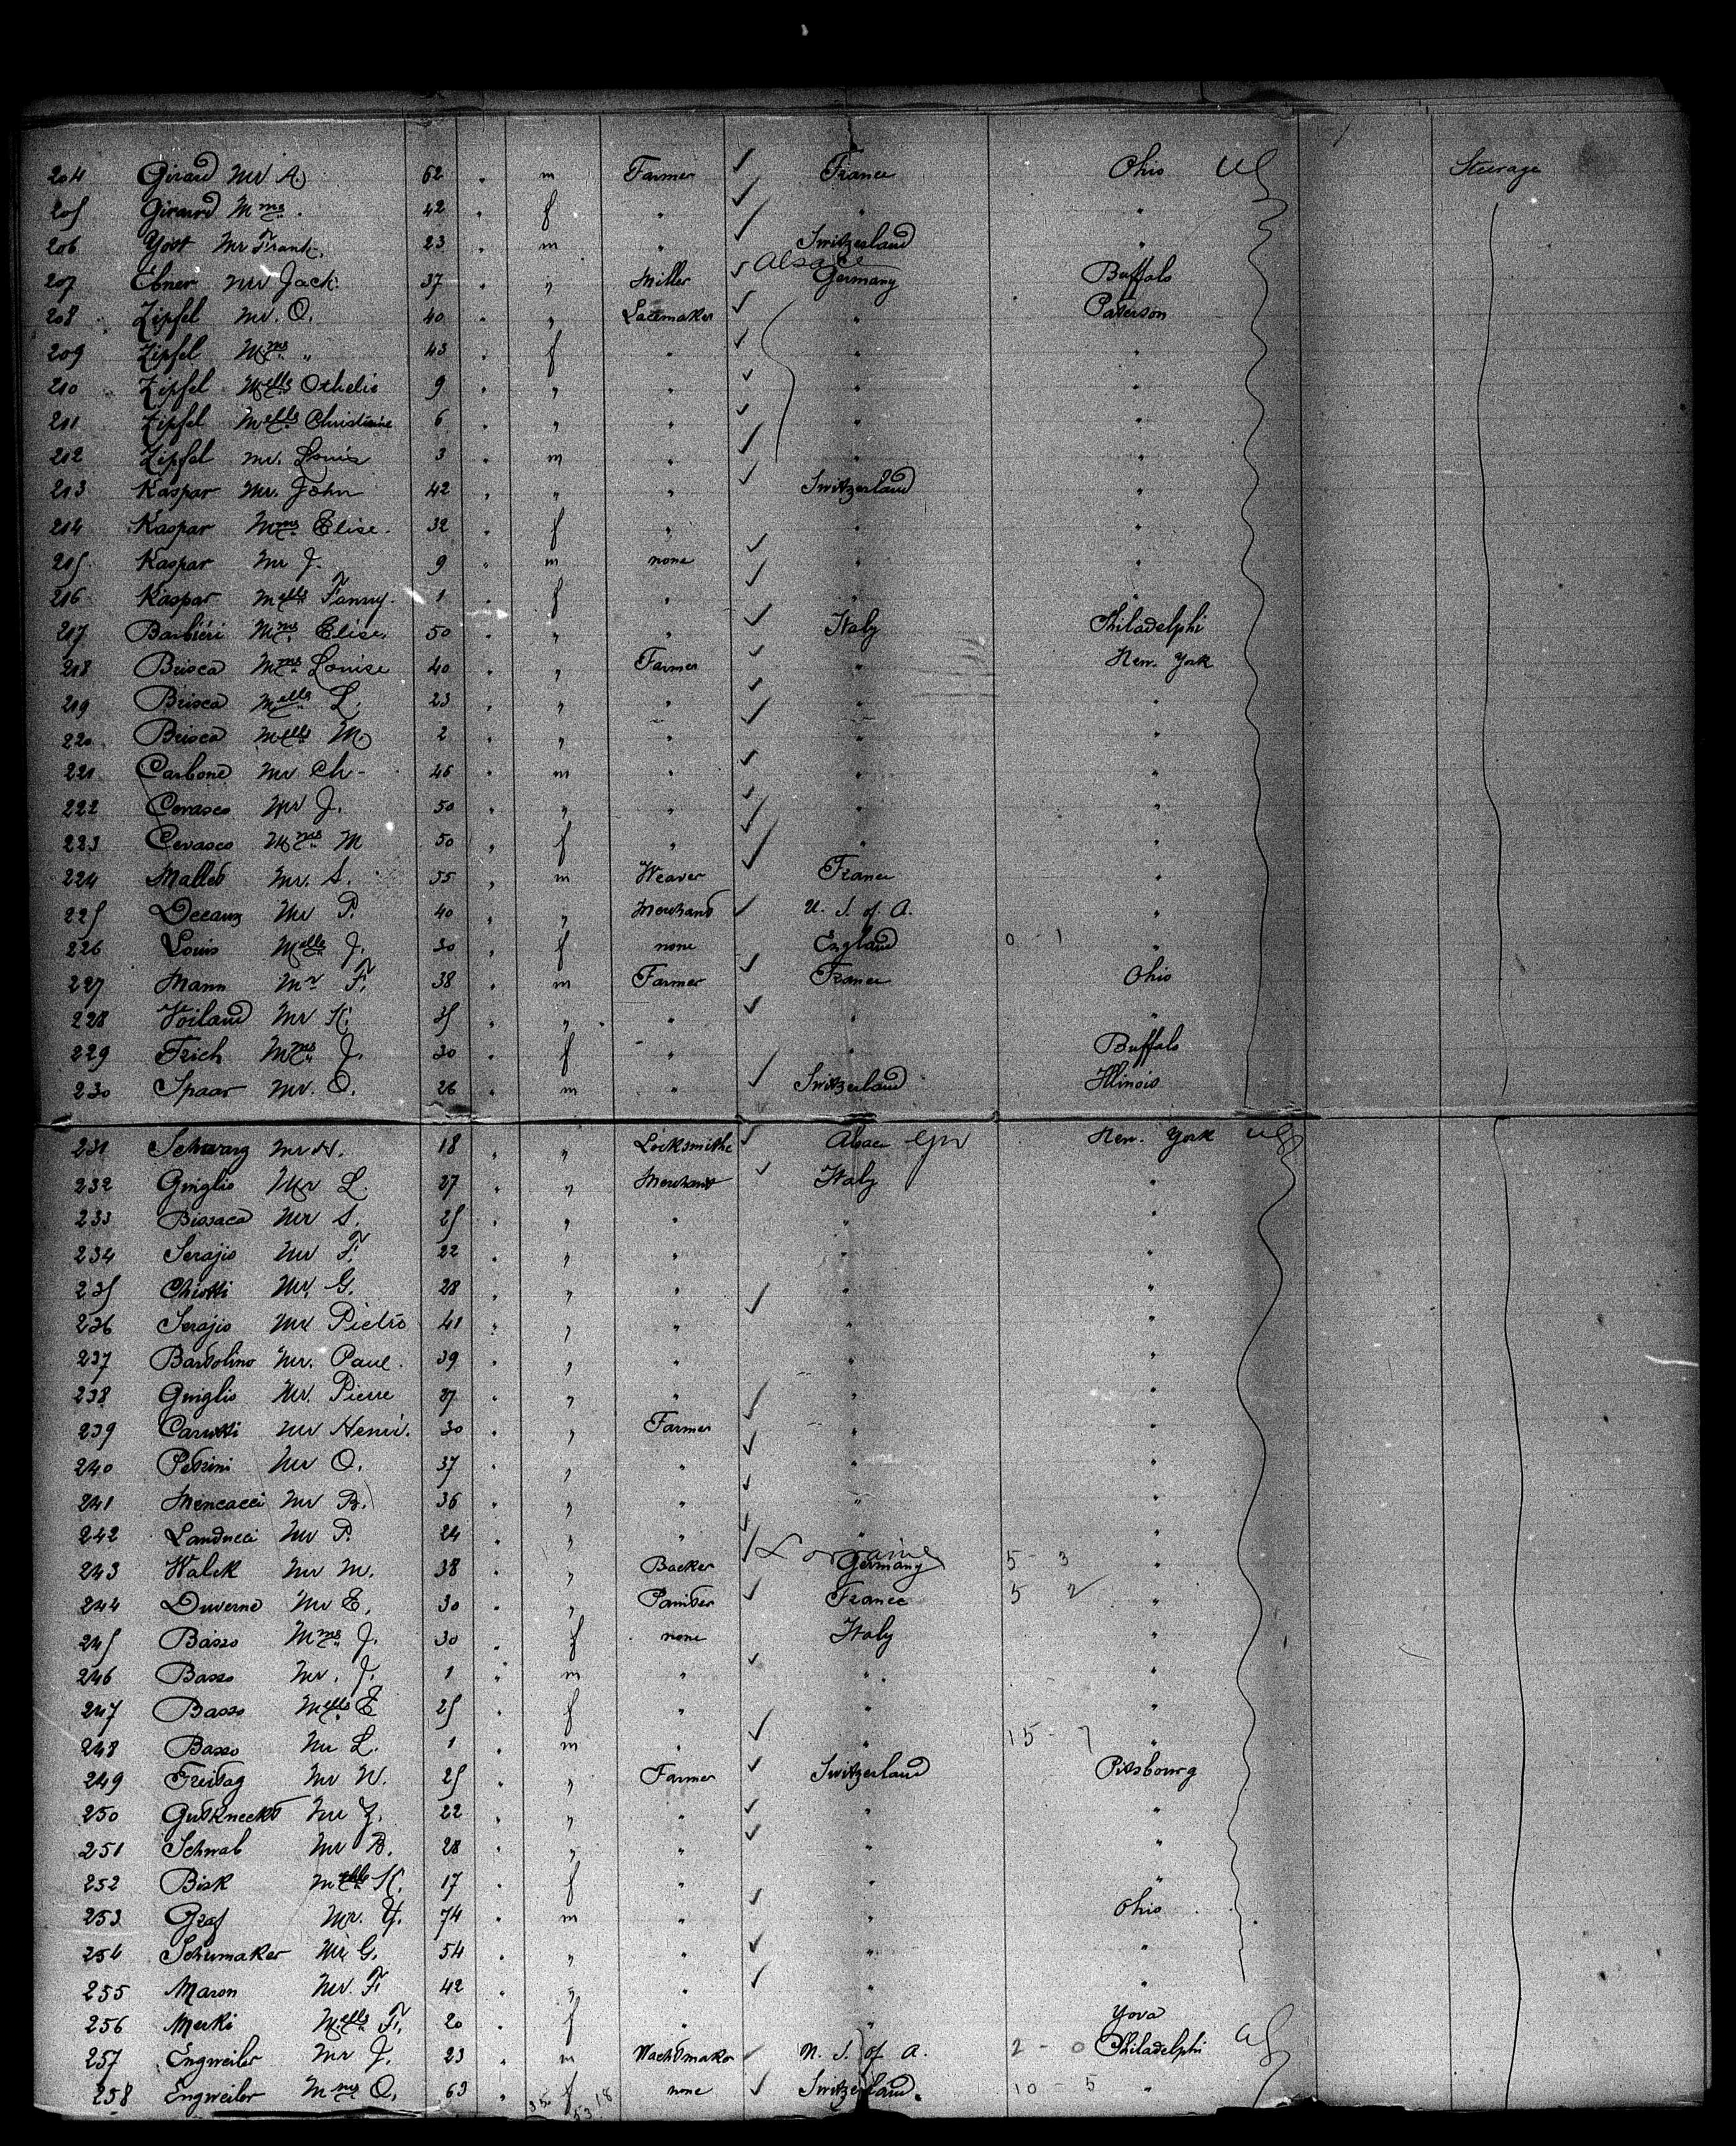 204 Girard Mr A. 62 " m Farmer France Ohio US Steerage
205 Girard Mme. 42 " f " " "
206 Yost Mr Frank. 23 " m " Switzerland "
Alsace
207 Ebner Mr Jack. 37 " " Miller Germany Buffalo
208 Zipfel Mr. O. 40 " " Lacemaker " Paterson
209 Zipfel Mme " 43 " f " " "
210 Zipfel Melle Othelie 9 " " " " "
211 Zipfel Melle Christianne 6 " " " " "
212 Zipfel Mr. Louis 3 " m " " "
213 Kaspar Mr. John 42 " " " Switzerland "
214 Kaspar Mme Elise. 32 " f " " "
215. Kaspar Mr J. 9 " m none " "
216 Kaspar Melle Fanny. 1 " f " " "
217 Barbiéri Mme Elise. 50 " " " Italy Philadelphi
218 Brisca Mme Louise 40 " " Farmer " New. York
219 Brisca Melle L. 23 " " " " "
220 Brisca Melle M. 2 " " " " "
221 Carbone Mr Ch- 45 " m " " "
222 Cevasco Mr J. 50 " " " " "
223 Cevasco Mme M 50 " f " " "
224 Mallet Mr. S. 55 " m Weaver France "
225 Mr P. 40 " " Merchant U. S. of A. "
226 Louis Melle J. 30 " f none England 0 - 1 "
227 Mann Mr F. 38 " m Farmer France Ohio
228 Voiland Mr K. 35 " " " " "
229 Frich Mme J. 30 " f " " Buffalo
230 Spaar Mr. O. 26 " m " Switzerland Illinois
231 Schwarz Mr H. 18 " " Locksmithe Alsace Ger New. York US
232 Guiglio Mr L. 27 " " Merchant Italy "
233 Bissaca Mr S. 25 " " " " "
234 Serajio Mr F. 22 " " " " "
235 Chiotti Mr G. 28 " " " " "
236 Serajio Mr Pietro 41 " " " " "
237 Bartolino Mr. Paul. 39 " " " " "
238 Guiglio Mr. Pierre 37 " " " " "
239 Carutti Mr Henri. 30 " " Farmer " "
240 Petrini Mr O. 37 " " " " "
241 Mencacci Mr B. 36 " " " " "
242 Landucci Mr P. 24 " " " " "
Lorraine
243 Walck Mr M. 38 " " Backer Germany 5 - 3 "
244 Duverne Mr E. 30 " " Painter France 5 2 "
245 Basso Mme J. 30 " f none Italy "
246 Basso Mr. J. 1 " m " " "
247 Basso Melle E 25 " f " " "
248 Basso Mr L. 1 " m " " 15 - 7 "
249 Freitag Mr W. 25 " " Farmer Switzerland Pitsbourg
250 Gutkneckt Mr J. 22 " " " " "
251 Schwab Mr B. 28 " " " " "
252 Bisk Melle K. 17 " f " " "
253 Graf Mr. Y. 74 " m " " Ohio
254 Schumaker Mr G. 54 " " " " "
255 Maron Mr. F. 42 " " " " "
256 Merki Melle F. 20 " f " " Yova
257 Engweiler Mr J. 23 " m Wachtmaker U. S. of A. 2 - 0 Philadelphi US
258 Engweiler Mme O. 63 " f none Switzerland. 10 - 5 "